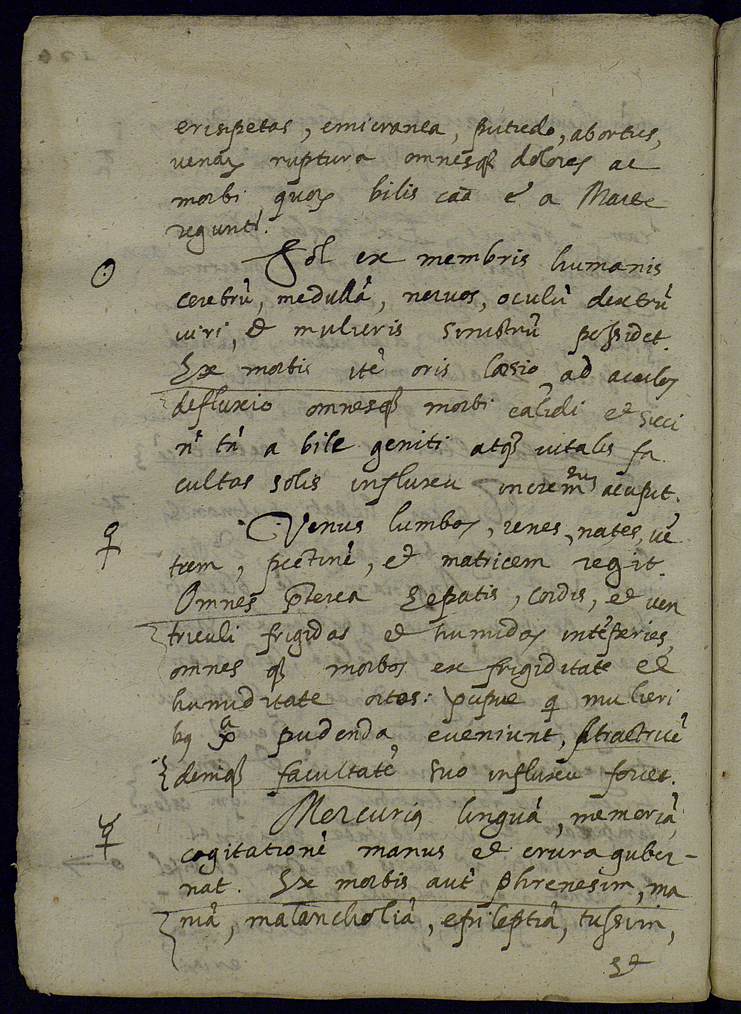 erisipelas, emicranea, putredo, abortus,
venaꝝ ruptura omnesqꝫ dolores ac
morbi quoꝝ bilis cãa ẽ a Marte
reguntʳ.
☉ Sol ex membris humanis
cerebrũ, medullã, nervos, oculũ dextrũ
viri, et mulieris sinistrũ possidet.
Ex morbis itẽ oris læsio, ad oculos
defluxio omnesqꝫ morbi calidi et sicci
nõ tñ a bile geniti atqꝫ vitalis fa
cultas solis influxu incremẽtus accipit.
♀ Venus lumbos, renes, nates, vẽ
trem, pectinẽ, et matricem regit.
Omnes p̃terea Epatis, Cordis, et ven
triculi frigidas et humidas intẽperies,
omnes qꝫ morbos ex frigiditate et
humiditate ortos: q̃ mulieri
bꝫ pudenda eveniunt, attractricẽ
deniqꝫ facultatẽ suo influxu fovet.
☿ Mercuriꝰ linguã, memoriã,
cogitationẽ manus et crura guber-
nat. Ex morbis autẽ phrenesim, ma
niã, malancholiã, epileptiã, tussim,
et